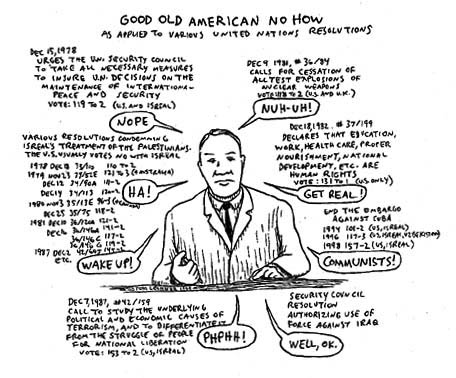 GOOD OLD AMERICAN NO HOW
AS APPLIED TO VARIOUS UNITED NATIONS RESOLUTIONS
DEC 15, 1978
URGES THE U.N. SECURITY COUNCIL
TO TAKE ALL NECESSARY MEASURES
TO INSURE U.N. DECISIONS ON THE
MAINTENANCE OF INTERNATIONAL
PEACE AND SECURITY
VOTE: 119 TO 2 (U.S. AND ISREAL)
NOPE
DEC 9 1981, # 36/84
CALLS FOR CESSATION OF
ALL TEST EXPLOSIONS OF
NUCLEAR WEAPONS
VOTE: 118 TO 2 (U.S. AND U.K.)
NUH-UH!
VARIOUS RESOLUTIONS CONDEMNING
ISREAL'S TREATMENT OF THE PALESTINIANS.
THE U.S. USUALLY VOTES NO WITH ISREAL
1978 DEC 18 33/110 110 TO 2
1979 NOV 23 (AUSTRALIA)
DEC 12 34/90A
DEC 14 34/113
1980 NOV 3 35/13E 96-3
DEC 5 35/75 118-2
1981 DEC 10 36/120A 121-2
DEC 16 36/146A 141-2
36/146C 117-2
119-2
1987 DEC 2
ETC.
HA!
WAKE UP!
DEC 18, 1982. # 37/199
DECLARES THAT EDUCATION,
WORK, HEALTH CARE, PROPER
NOURISHMENT, NATIONAL
DEVELOPMENT, ETC. ARE
HUMAN RIGHTS
VOTE: 131 TO 1 (U.S. ONLY)
GET REAL!
END THE EMBARGO
AGAINST CUBA
1994 101-2 (US, ISREAL)
1996 (US, ISREAL, UZBEKISTAN)
1998 157-2 (US, ISREAL)
COMMUNISTS!
DEC 7, 1987, # 42/159
CALL TO STUDY THE UNDERLYING
POLITICAL AND ECONOMIC CAUSES OF
TERRORISM, AND TO DIFFERENTIATE IT
FROM THE STRUGGLE OF PEOPLE
FOR NATIONAL LIBERATION
VOTE: 153 TO 2 (US, ISREAL)
PHPHH!
SECURITY COUNCIL
RESOLUTION
AUTHORIZING USE OF
FORCE AGAINST IRAQ
WELL, OK.